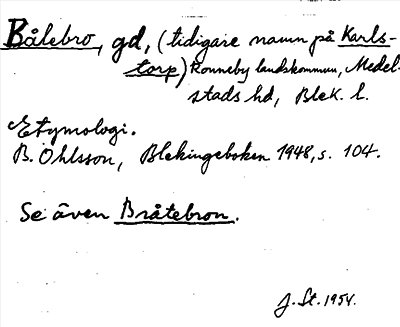 Bålebro, gd, (tidigare namn på Karls-
torp) Ronneby landskommun, Medel-
stads hd, Blek. l.
Etymologi.
B. Ohlsson, Blekingeboken 1948, s. 104.
Se även Bråtebron.
J. St. 1954.